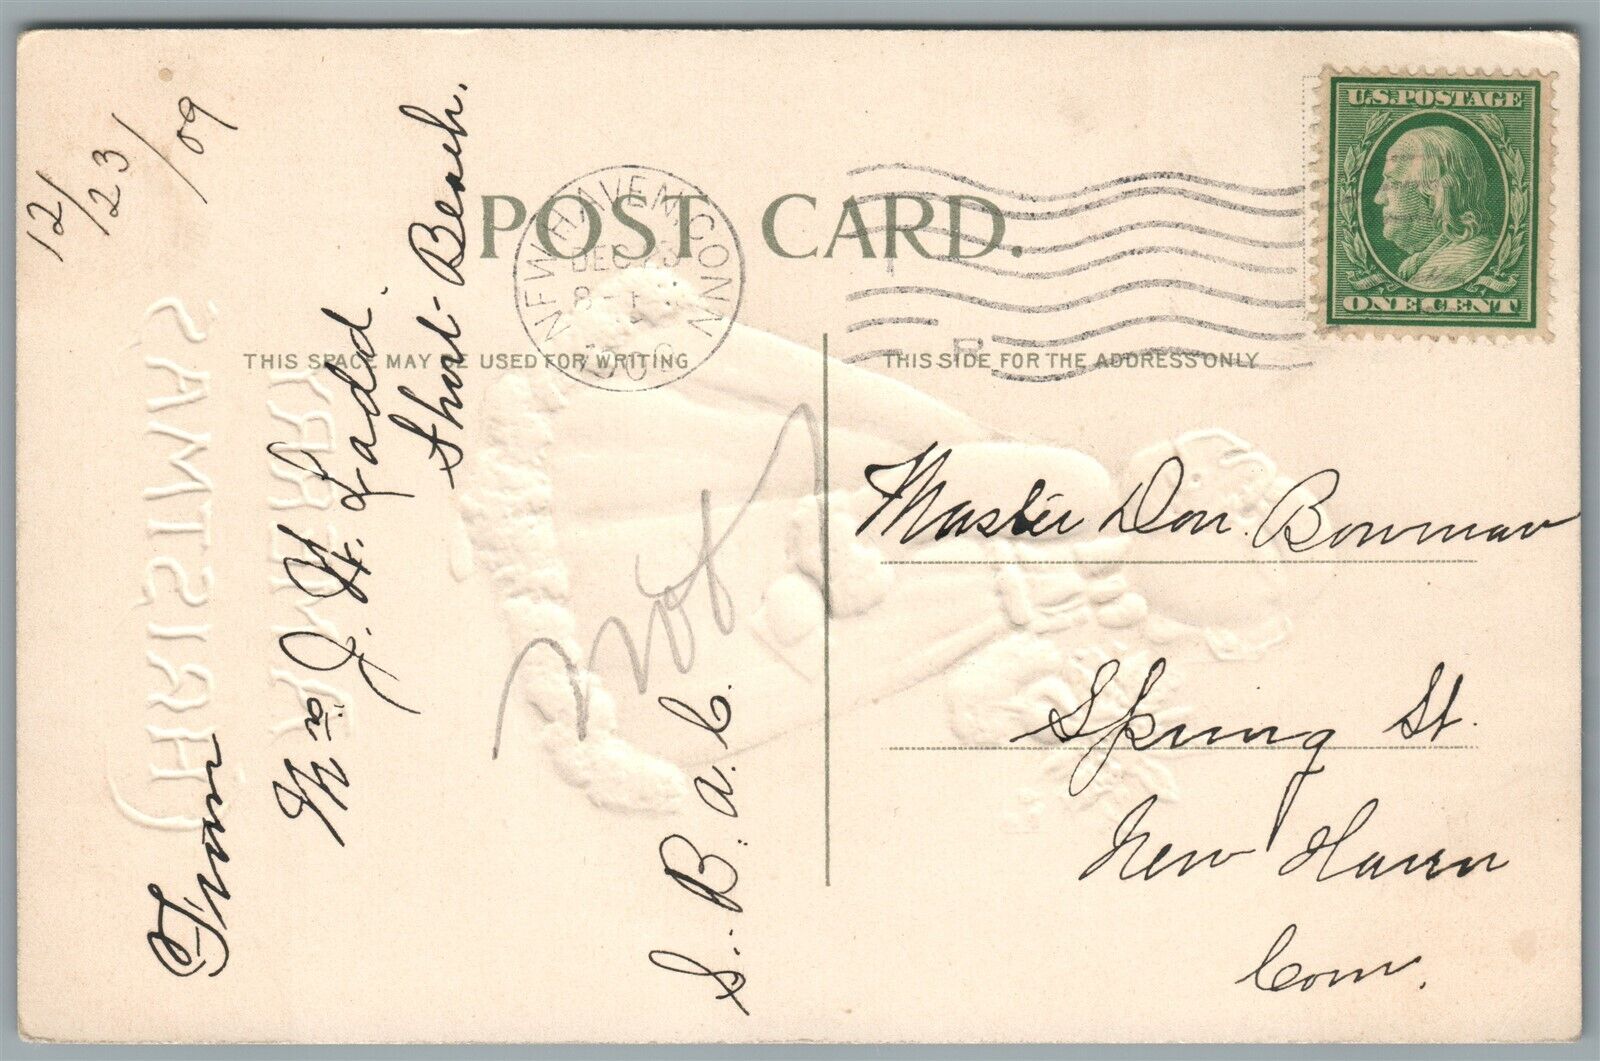 12/23/09
POST CARD.
NEW HAVEN, CONN
DEC 23
8-
1909
U.S. POSTAGE
ONE CENT
THIS SPACE MAY BE USED FOR WRITING
THIS SIDE FOR THE ADDRESS ONLY
From
Mrs J. H. Ladd.
Short-Beach.
S. B. a. C.
Master Don Bowman
Spring St.
New Haven
Conn.
MERRY
CHRISTMAS